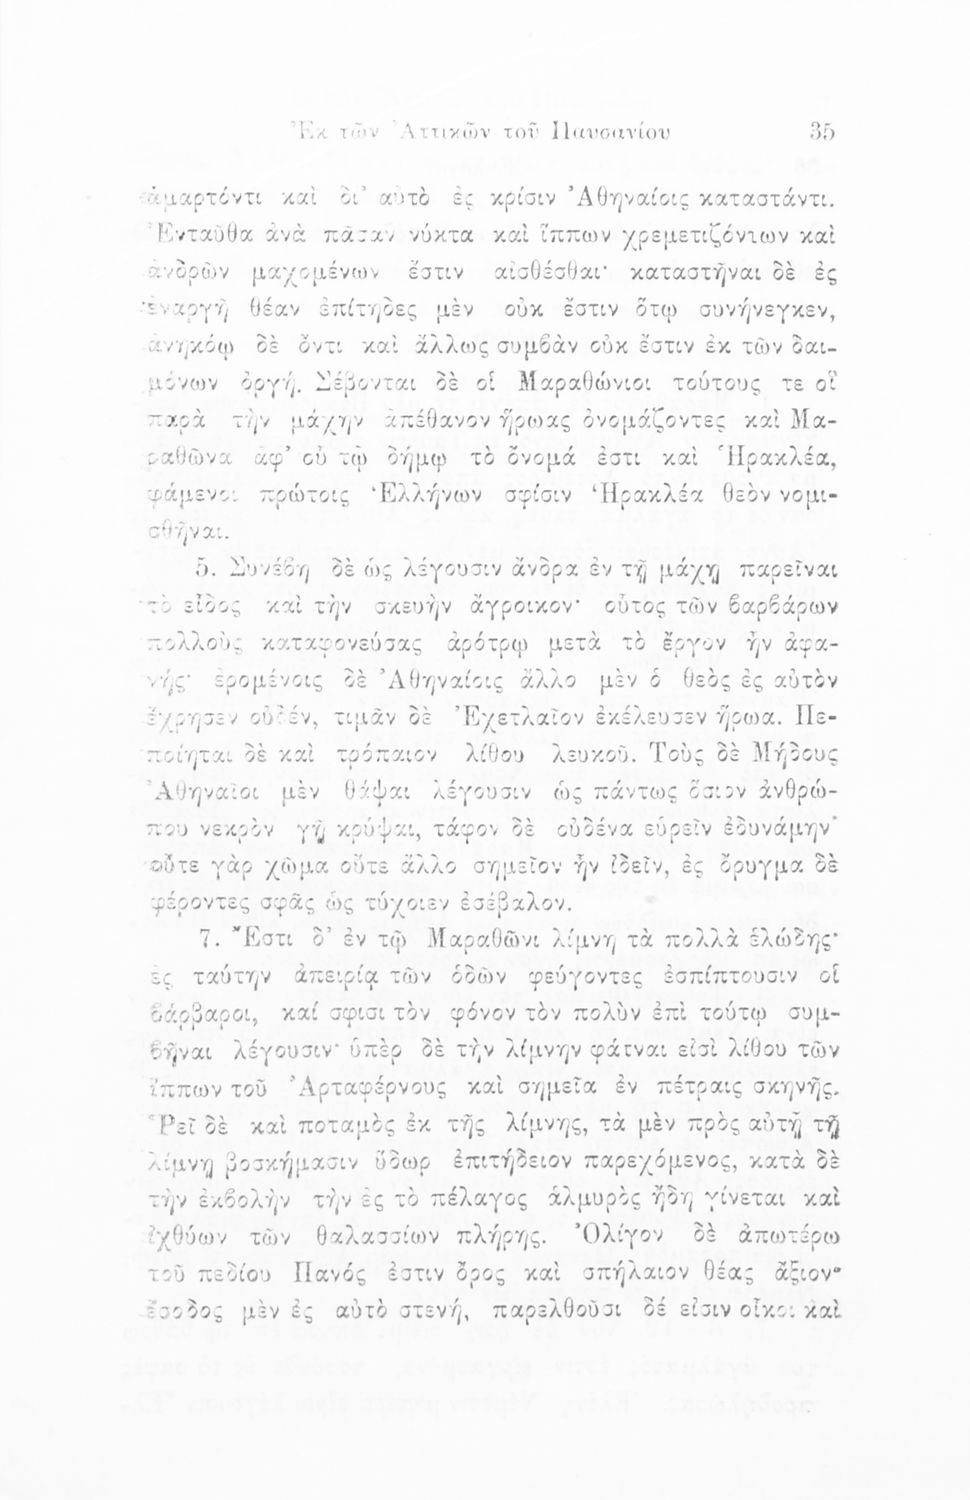 Ἐκ τῶν Ἀττικῶν τοῦ Παυσανίου 35
ἁμαρτόντι καὶ δι' αὐτὸ ἐς κρίσιν Ἀθηναίοις καταστάντι.
Ἐνταῦθα ἀνὰ πᾶσαν νύκτα καὶ ἵππων χρεμετιζόντων καὶ
ἀνδρῶν μαχομένων ἔστιν αἰσθέσθαι· καταστῆναι δὲ ἐς
ἐναργῆ θέαν ἐπίτηδες μὲν οὐκ ἔστιν ὅτῳ συνήνεγκεν,
ἀνηκόῳ δὲ ὄντι καὶ ἄλλως συμβὰν οὐκ ἔστιν ἐκ τῶν δαι-
μόνων ὀργή. Σέβονται δὲ οἱ Μαραθώνιοι τούτους τε οἳ
παρὰ τὴν μάχην ἀπέθανον ἥρωας ὀνομάζοντες καὶ Μα-
ραθῶνα ἀφ' οὗ τῷ δήμῳ τὸ ὄνομά ἐστι καὶ Ἡρακλέα,
φάμενοι πρώτοις Ἑλλήνων σφίσιν Ἡρακλέα θεὸν νομι-
σθῆναι.
5. Συνέβη δὲ ὡς λέγουσιν ἄνδρα ἐν τῇ μάχῃ παρεῖναι
τὸ εἶδος καὶ τὴν σκευὴν ἄγροικον· οὗτος τῶν βαρβάρων
πολλοὺς καταφονεύσας ἀρότρῳ μετὰ τὸ ἔργον ἦν ἀφα-
νής· ἐρομένοις δὲ Ἀθηναίοις ἄλλο μὲν ὁ θεὸς ἐς αὐτὸν
ἔχρησεν οὐδέν, τιμᾶν δὲ Ἐχετλαῖον ἐκέλευσεν ἥρωα. Πε-
ποίηται δὲ καὶ τρόπαιον λίθου λευκοῦ. Τοὺς δὲ Μήδους
Ἀθηναῖοι μὲν θάψαι λέγουσιν ὡς πάντως ὅσιον ἀνθρώ-
που νεκρὸν γῇ κρύψαι, τάφον δὲ οὐδένα εὑρεῖν ἐδυνάμην·
οὔτε γὰρ χῶμα οὔτε ἄλλο σημεῖον ἦν ἰδεῖν, ἐς ὄρυγμα δὲ
φέροντες σφᾶς ὡς τύχοιεν ἐσέβαλον.
7. Ἔστι δ' ἐν τῷ Μαραθῶνι λίμνη τὰ πολλὰ ἑλώδης·
ἐς ταύτην ἀπειρίᾳ τῶν ὁδῶν φεύγοντες ἐσπίπτουσιν οἱ
βάρβαροι, καί σφισι τὸν φόνον τὸν πολὺν ἐπὶ τούτῳ συμ-
βῆναι λέγουσιν· ὑπὲρ δὲ τὴν λίμνην φάτναι εἰσὶ λίθου τῶν
ἵππων τοῦ Ἀρταφέρνους καὶ σημεῖα ἐν πέτραις σκηνῆς.
Ῥεῖ δὲ καὶ ποταμὸς ἐκ τῆς λίμνης, τὰ μὲν πρὸς αὐτῇ τῇ
λίμνῃ βοσκήμασιν ὕδωρ ἐπιτήδειον παρεχόμενος, κατὰ δὲ
τὴν ἐκβολὴν τὴν ἐς τὸ πέλαγος ἁλμυρὸς ἤδη γίνεται καὶ
ἰχθύων τῶν θαλασσίων πλήρης. Ὀλίγον δὲ ἀπωτέρω
τοῦ πεδίου Πανός ἐστιν ὄρος καὶ σπήλαιον θέας ἄξιον·
ἔσοδος μὲν ἐς αὐτὸ στενή, παρελθοῦσι δέ εἰσιν οἶκοι καὶ